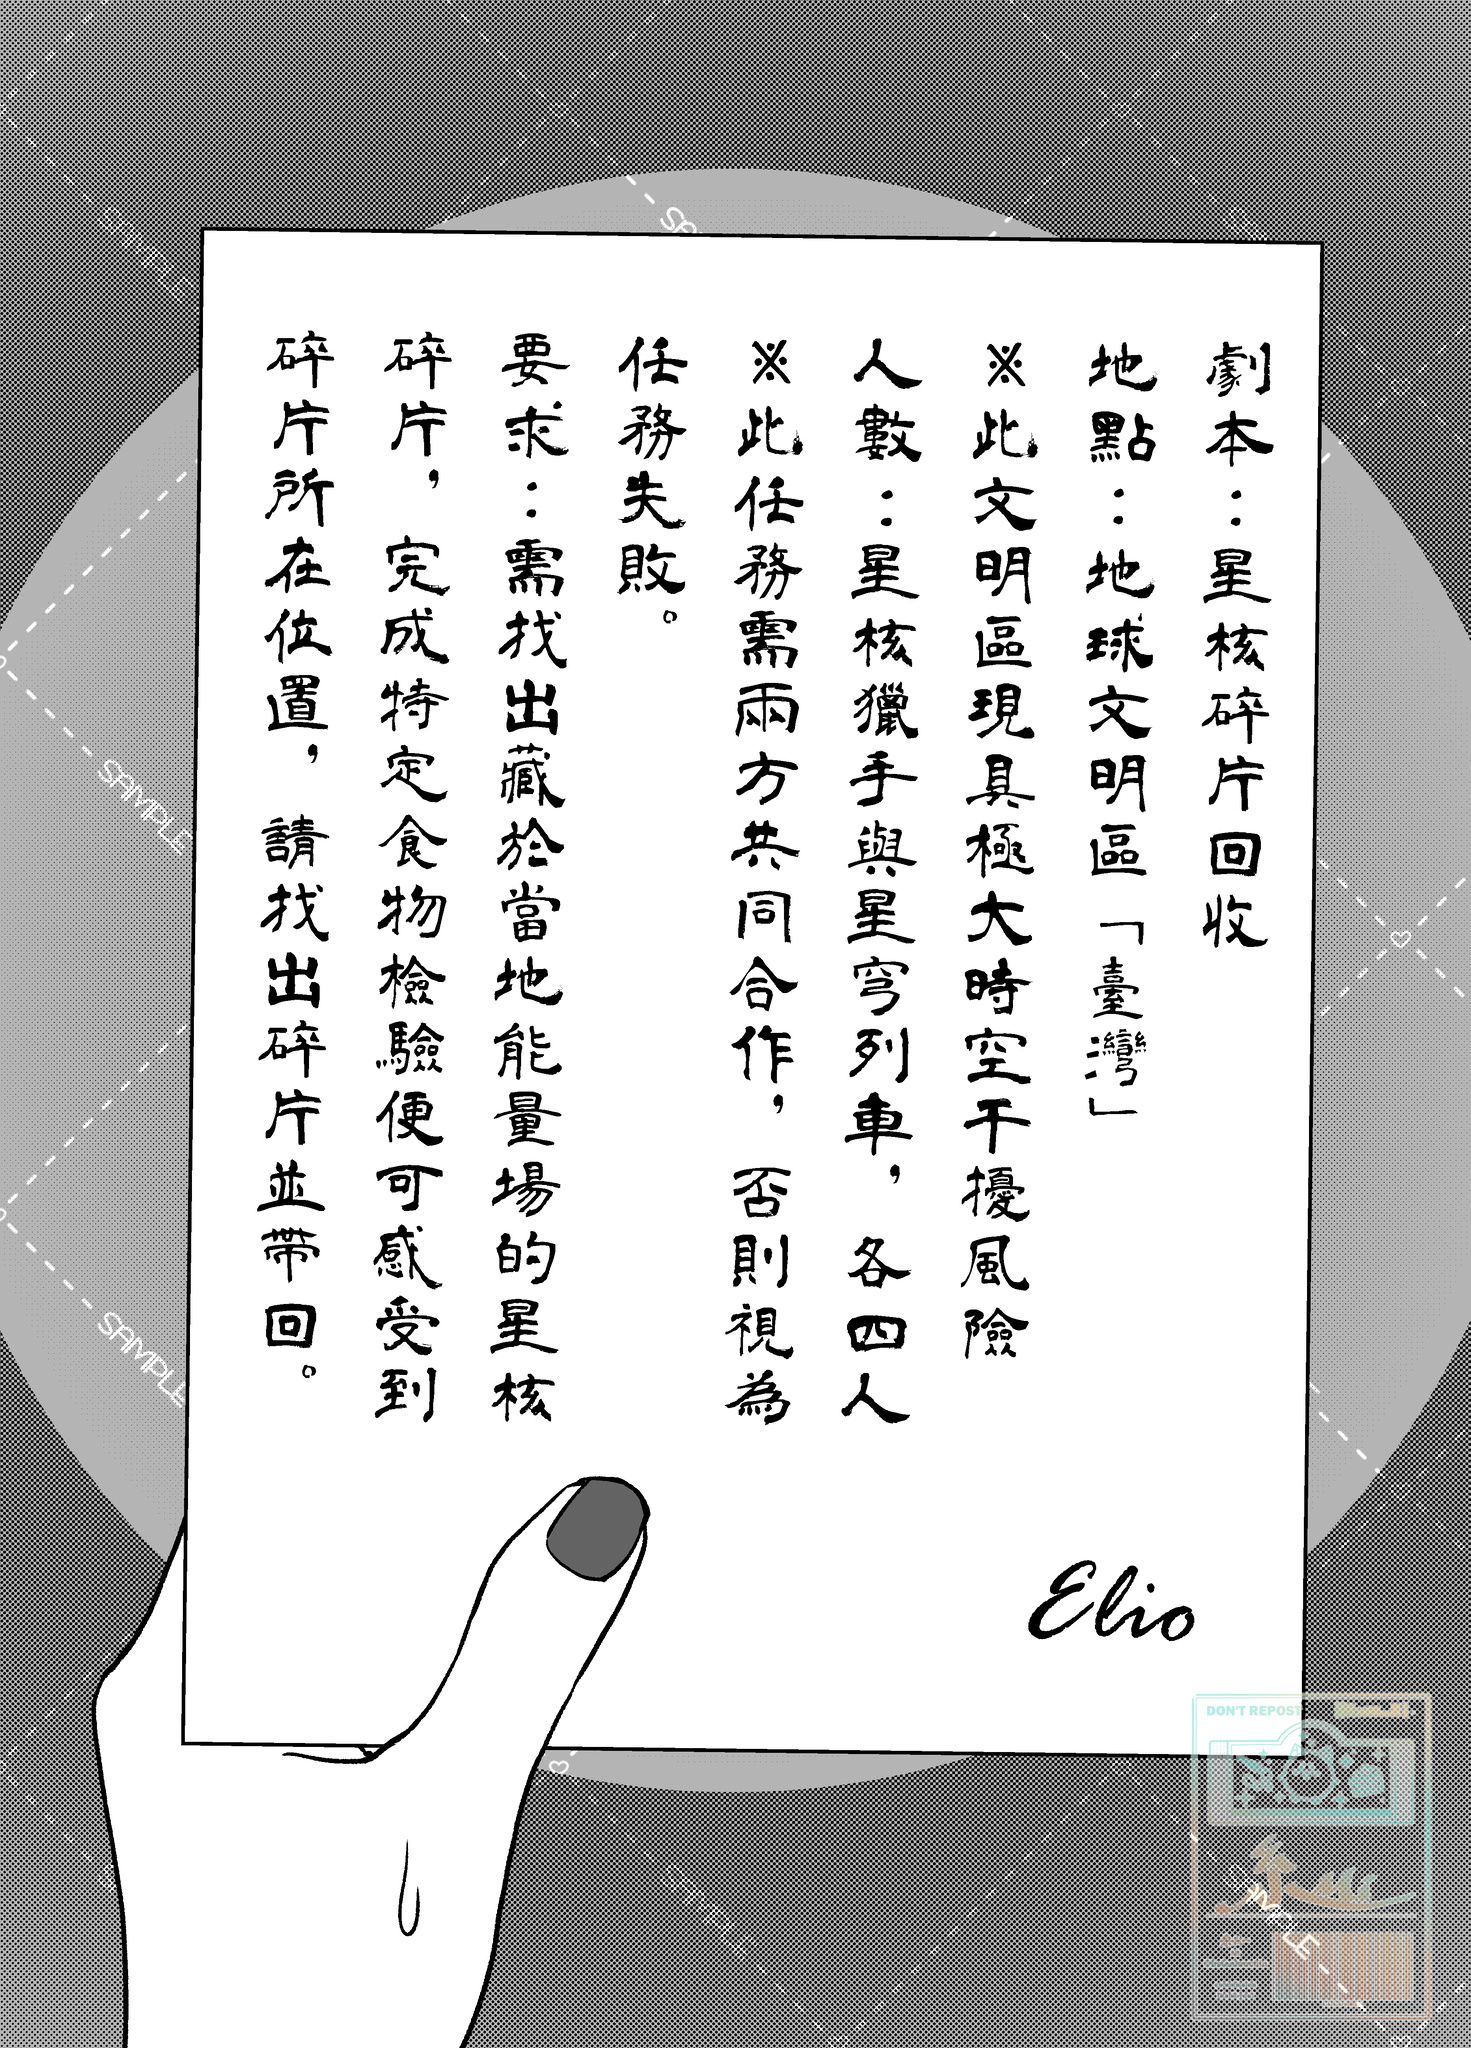 劇本：星核碎片回收
地點：地球文明區「臺灣」
※此文明區現具極大時空干擾風險
人數：星核獵手與星穹列車，各四人
※此任務需兩方共同合作，否則視為
任務失敗。
要求：需找出藏於當地能量場的星核
碎片，完成特定食物檢驗便可感受到
碎片所在位置，請找出碎片並帶回。
Elio
SAMPLE
SAMPLE
SAMPLE
DON'T REPOST